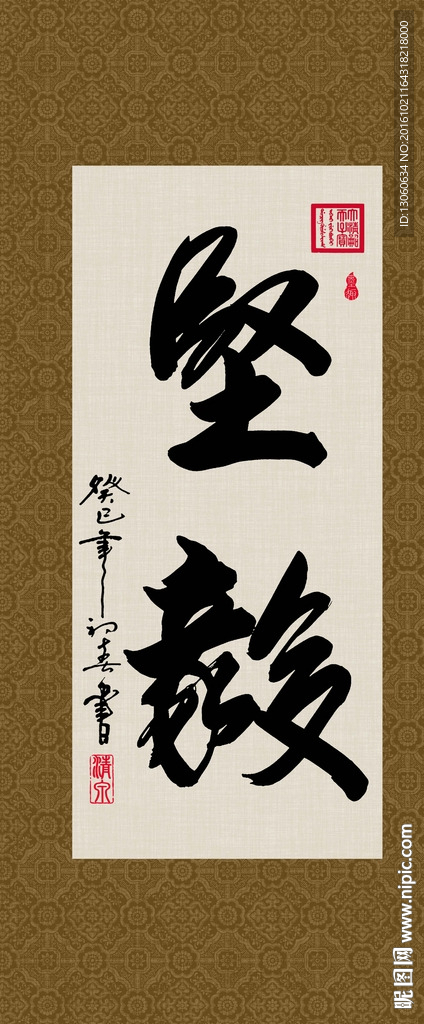 坚毅
癸巳年初春书
清泉
ID:13060634 NO:20161021164318218000
昵图网 www.nipic.com